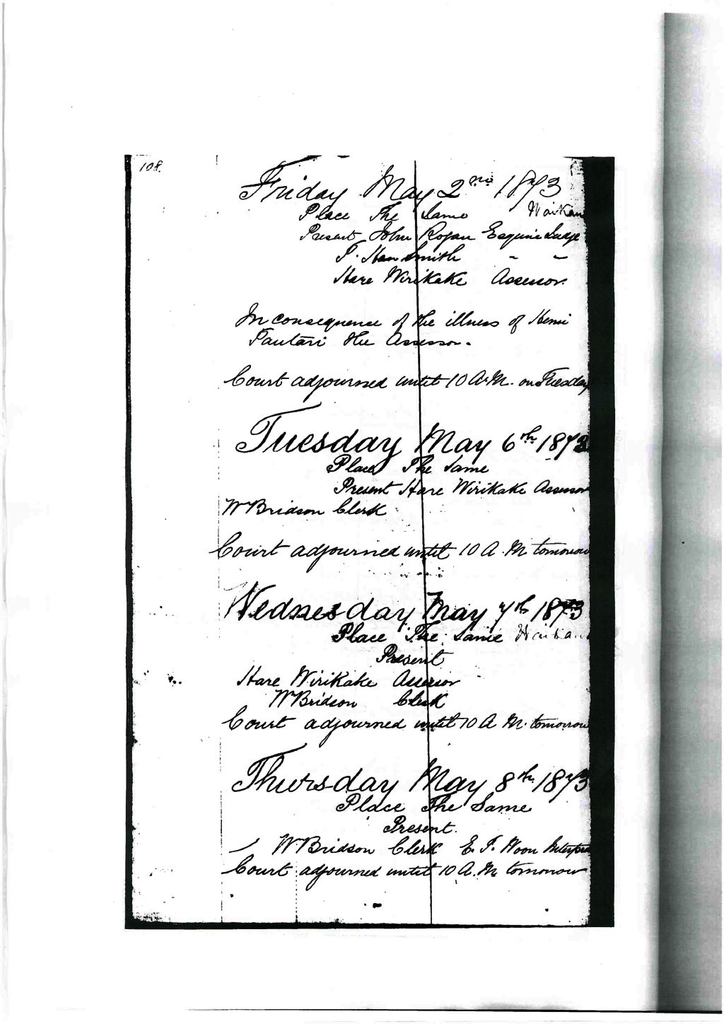 108.
Friday May 2nd 1873
Place The Same
Present John Rogan Esquire Judge
Smith " "
Hare Wirikake Assessor.
In consequence of the illness of Hemi
Tautari the Assessor.
Court adjourned until 10 A.M. on Tuesday
Tuesday May 6th 1873
Place The Same
Present Hare Wirikake Assessor
W Bridson Clerk
Court adjourned until 10 A. M tomorrow
Wednesday May 7th 1873
Place The Same
Present
Hare Wirikake Assessor
W Bridson Clerk
Court adjourned until 10 A M. tomorrow
Thursday May 8th 1873
Place The Same
Present.
W Bridson Clerk E. J. Woon
Court adjourned until 10 A. M tomorrow